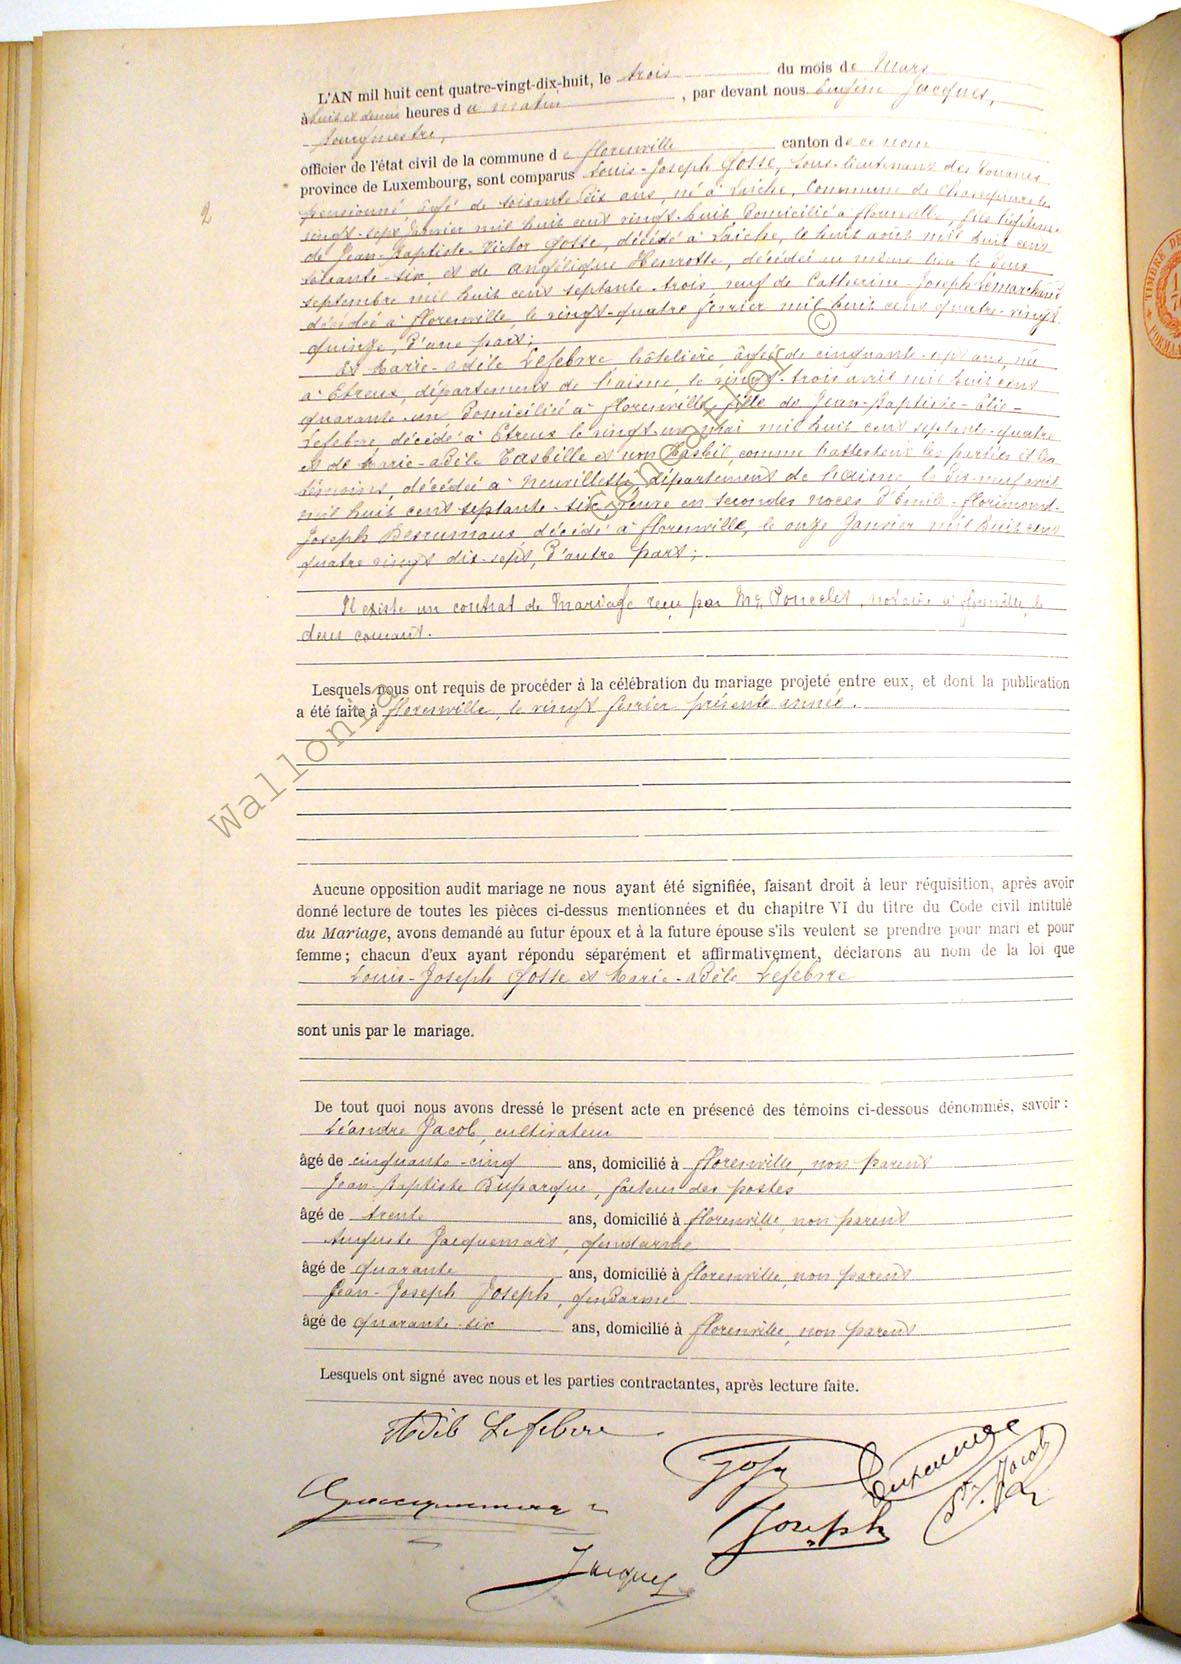 L'AN mil huit cent quatre-vingt-dix-huit, le trois du mois de Mars
à huit et demie heures du matin, par devant nous Eugène Jacques,
bourgmestre,
officier de l'état civil de la commune de Florenville canton de ce nom
province de Luxembourg, sont comparus Louis-Joseph Gosse, sous-lieutenant des Douanes
pensionné âgé de soixante dix ans, né à Laiche, Commune de
vingt-sept Janvier mil huit cent vingt-huit Domicilié à Florenville, fils légitime
de Jean-Baptiste-Victor Gosse, décédé à Laiche, le huit août mil huit cent
soixante-six, et de Angélique Henrotte, décédée au même lieu le deux
septembre mil huit cent septante-trois veuf de Catherine-Joseph Lemarchand
décédée à Florenville, le vingt-quatre février mil huit cent quatre-vingt
quinze, d'une part;
Et Marie-Adèle Lefebvre, hôtelière, âgée de cinquante-sept ans, née
à Etreux, département de l'aisne, le vingt-trois avril mil huit cent
quarante-un Domiciliée à Florenville, fille de Jean-Baptiste-Elie-
Lefebvre, décédé à Etreux le vingt-un mai mil huit cent septante-quatre
et de Marie-Adèle Tasbille et non Hasbil, comme l'attestent les parties et les
témoins, décédée à Neuvillette, département de l'aisne, le dix-neuf avril
mil huit cent septante-six, veuve en secondes noces d'Emile-Florimond-
Joseph Desrumaux décédé à Florenville, le onze Janvier mil huit cent
quatre vingt dix-sept, d'autre part;
Il existe un contrat de Mariage reçu par Me Poncelet, notaire à Florenville, le
deux courant.
Lesquels nous ont requis de procéder à la célébration du mariage projeté entre eux, et dont la publication
a été faite à Florenville, le vingt février présente année.
Aucune opposition audit mariage ne nous ayant été signifiée, faisant droit à leur réquisition, après avoir
donné lecture de toutes les pièces ci-dessus mentionnées et du chapitre VI du titre du Code civil intitulé
du Mariage, avons demandé au futur époux et à la future épouse s'ils veulent se prendre pour mari et pour
femme; chacun d'eux ayant répondu séparément et affirmativement, déclarons au nom de la loi que
Louis-Joseph Gosse et Marie-Adèle Lefebvre
sont unis par le mariage.
De tout quoi nous avons dressé le présent acte en présence des témoins ci-dessous dénommés, savoir:
Léandre Jacob, cultivateur
âgé de cinquante-cinq ans, domicilié à Florenville, non parent
Jean-Baptiste Duparque, facteur des postes
âgé de trente ans, domicilié à Florenville, non parent
Auguste Jacquemart, gendarme
âgé de quarante ans, domicilié à Florenville, non parent
Jean-Joseph Joseph, gendarme
âgé de quarante-six ans, domicilié à Florenville, non parent
Lesquels ont signé avec nous et les parties contractantes, après lecture faite.
Adèle Lefebvre
Joseph
Jacques
2
Wallonia
Genealogy
©
TIMBRE DE